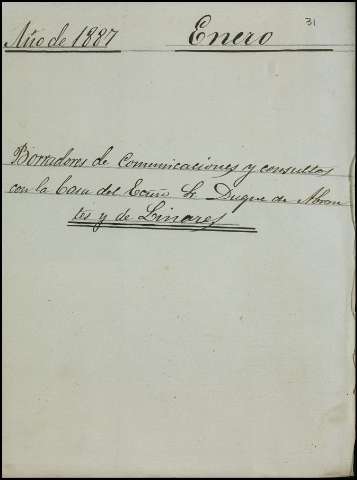 31
Año de 1887 Enero
Borradores de Comunicaciones y consultas
con la Casa del Ecmo Sr. Duque de Abran
tes y de Linares